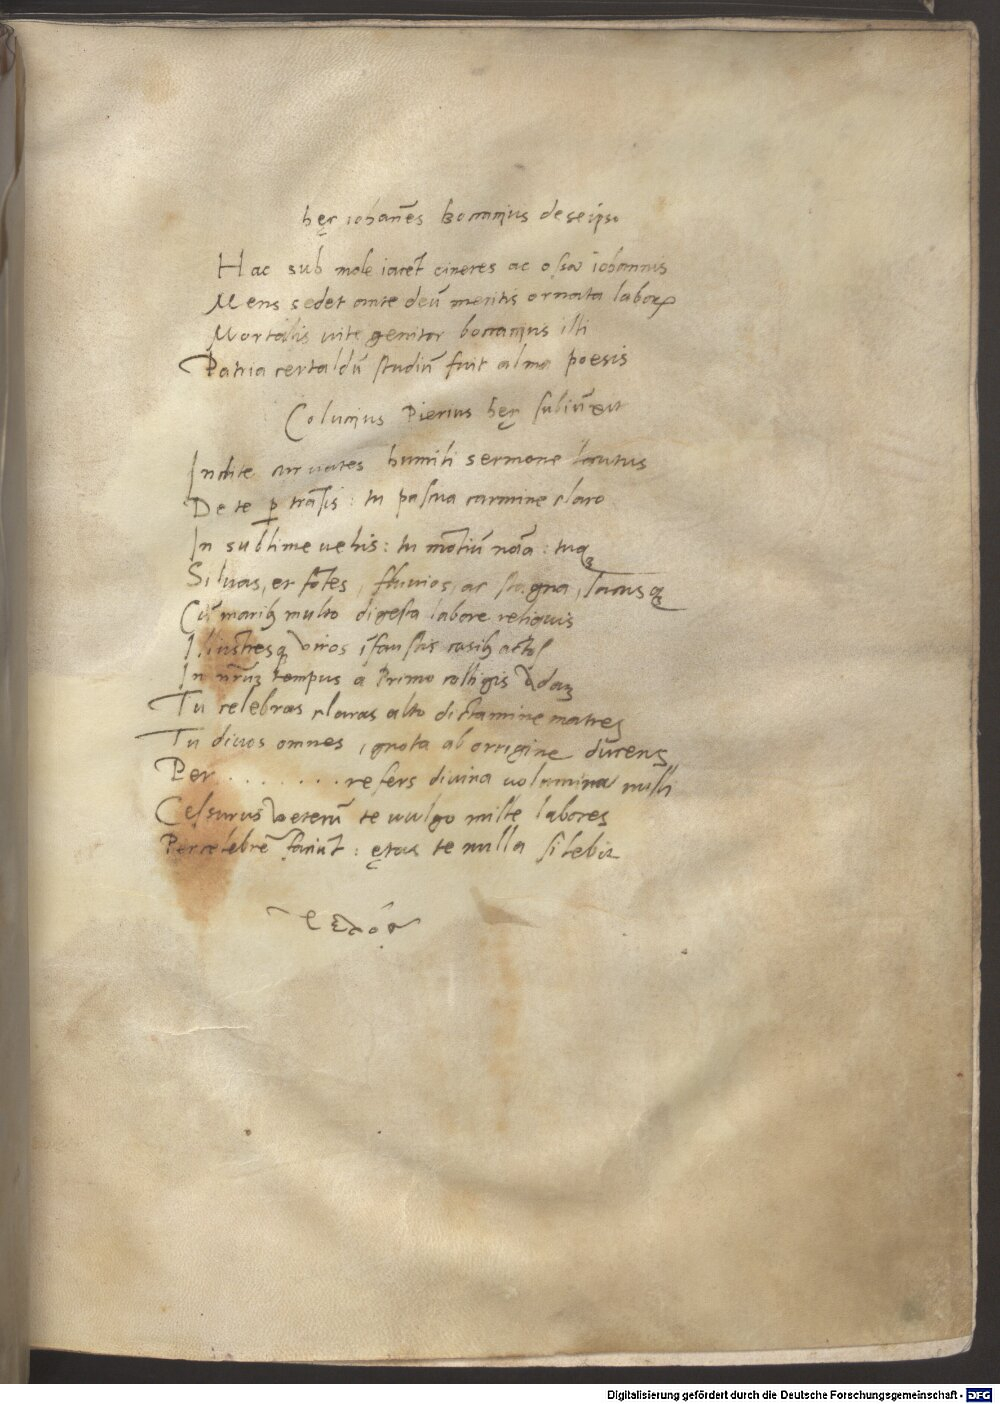 hęr iohanēs Boccacius de se ipso
Hac sub mole iacēt cineres ac ossa iohannis
Mens sedet ante deū meritis ornata laboꝝ
Mortalis uite genitor boccacius illi
Patria certaldū studiū fuit alma poesis
Colucius Pierius hęc subiūxit
Inclite cur uates humili sermone locutus
De te ꝑ trāsis : tu pascua carmine claro
In sublime uehis : tu mōtiū noīa : tuqꝫ
Siluas, et fōtes, fluuios, ac stagna, lacusqꝫ
Cū maribꝫ multo digesta labore reliquis
Illustresqꝫ viros īfaustis casibꝫ actos
In nr̄uꝫ tempus a Primo colligis Adaꝫ
Tu celebras claras alto dictamine matres
Tu diuos omnes ignota ab origine ducens
Per . . . . . . . . refers diuina uolumina nulli
Cessurus veterū te uulgo mille labores
Percelebrē faciūt : ętas te nulla silebit